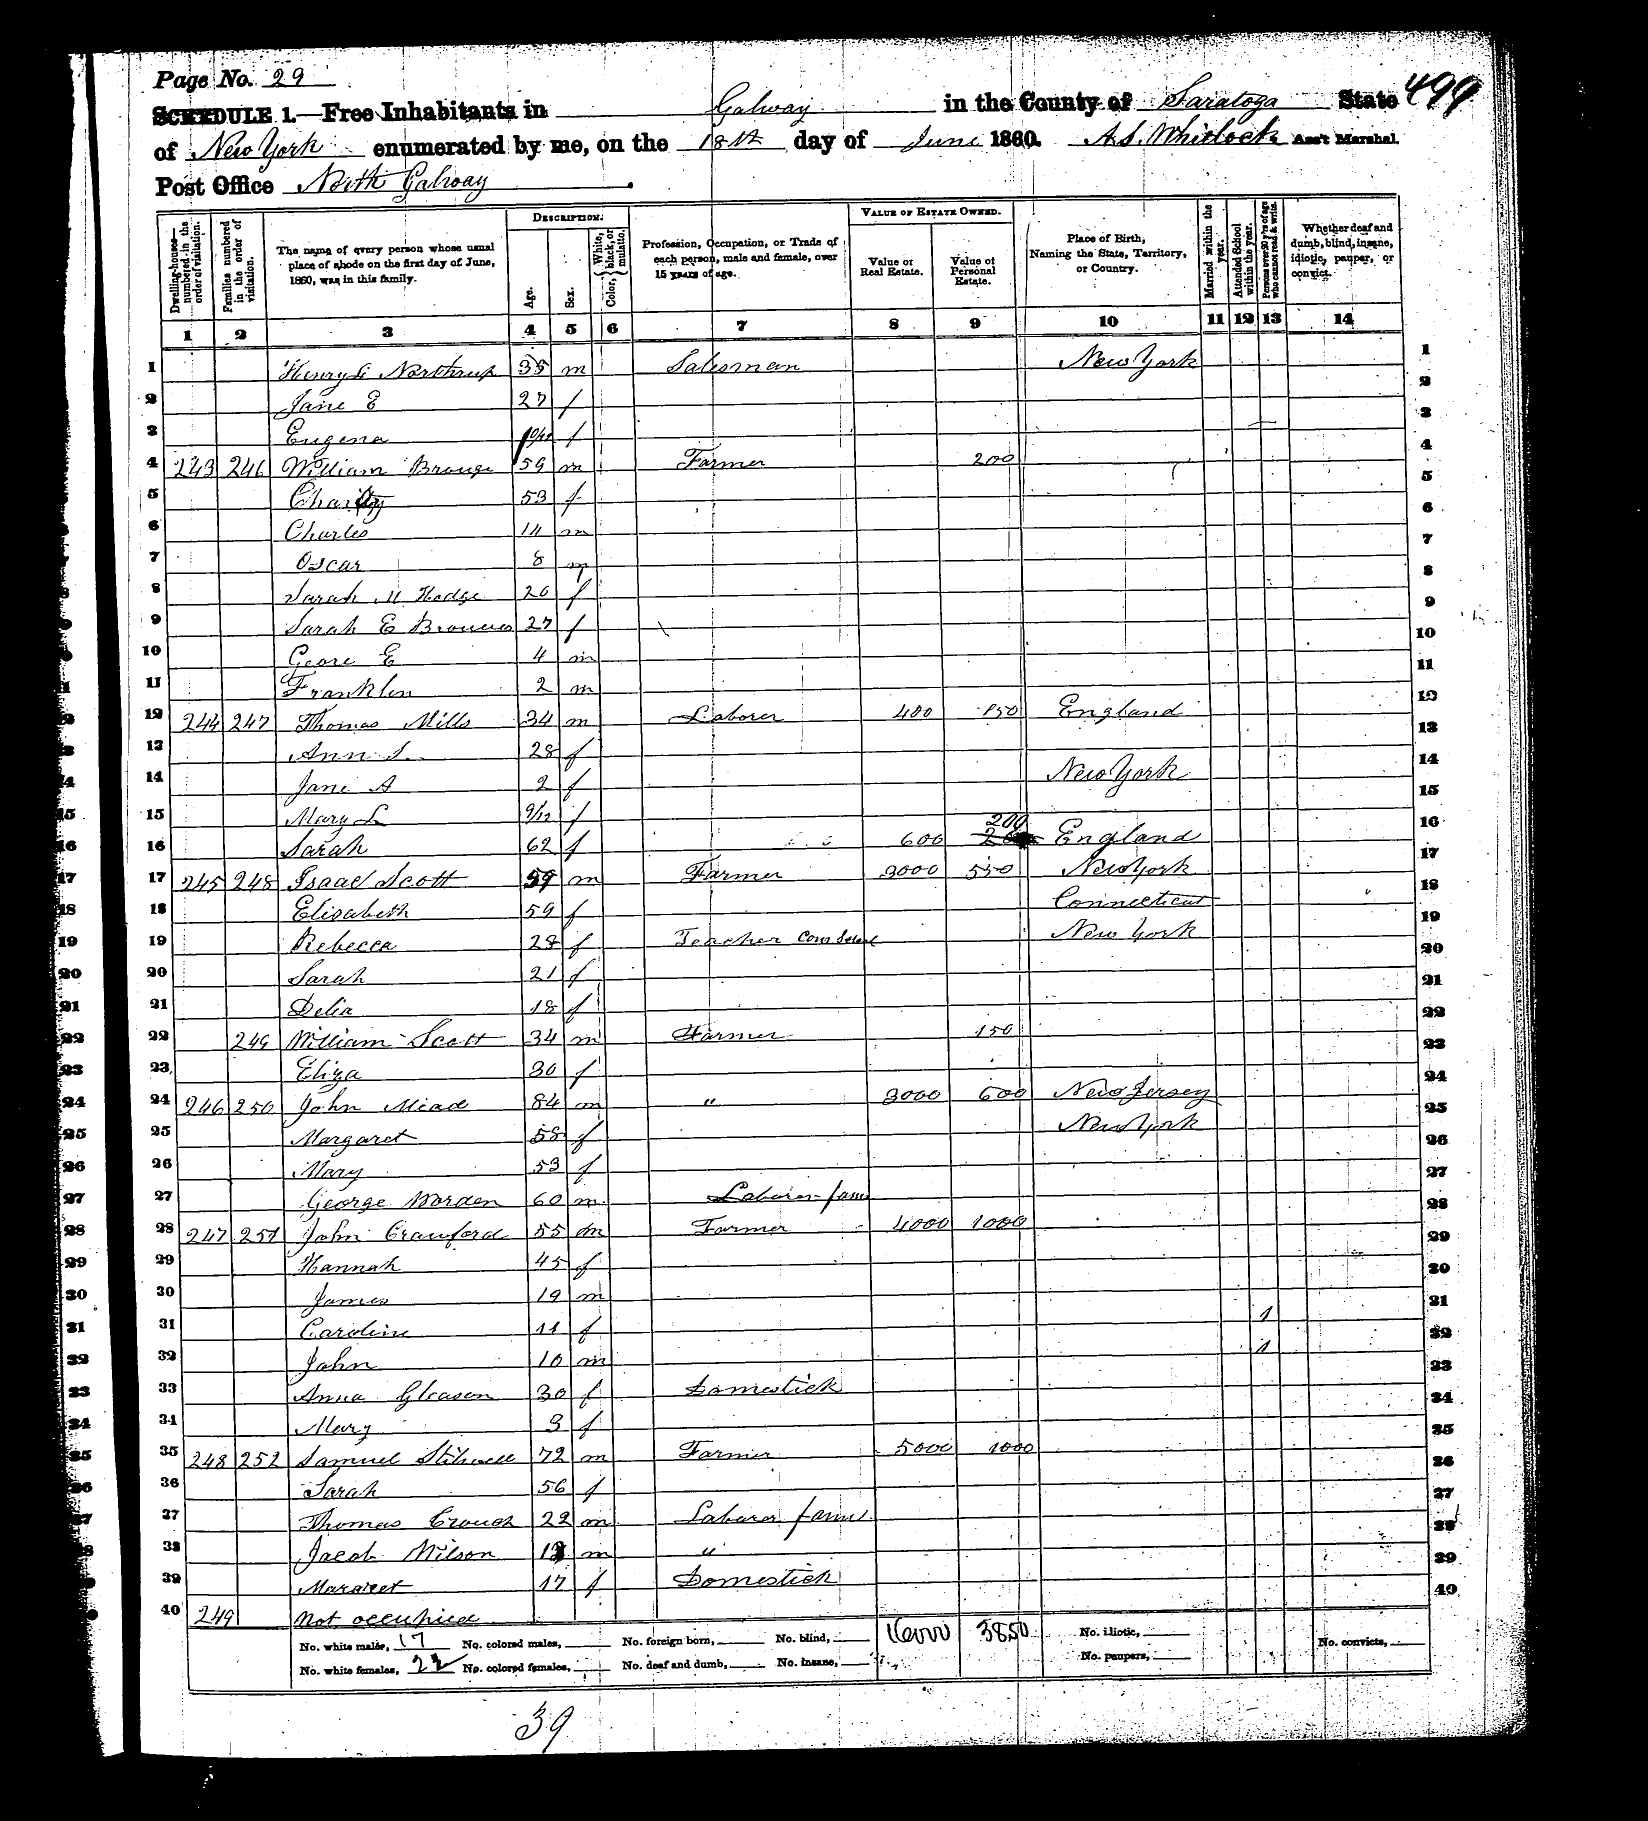 Page No. 29
499
SCHEDULE 1.—Free Inhabitants in Galway in the County of Saratoga State
of New York enumerated by me, on the 18th day of June 1860. A.S. Whitlock Ass't Marshal.
Post Office North Galway
Dwelling-houses numbered in the order of visitation.
Families numbered in the order of visitation.
The name of every person whose usual place of abode on the first day of June, 1860, was in this family.
DESCRIPTION.
Age.
Sex.
Color, White, black, or mulatto.
Profession, Occupation, or Trade of each person, male and female, over 15 years of age.
VALUE OF ESTATE OWNED.
Value of Real Estate.
Value of Personal Estate.
Place of Birth, Naming the State, Territory, or Country.
Married within the year.
Attended School within the year.
Persons over 20 y'rs of age who cannot read & write.
Whether deaf and dumb, blind, insane, idiotic, pauper, or convict.
1 2 3 4 5 6 7 8 9 10 11 12 13 14
1 Henry Northrup 35 m Salesman New York 1
2 Jane E 27 f 2
3 Eugena 10/12 f 3
4 243 246 William Brouge 59 m Farmer 200 4
5 Charity 53 f 5
6 Charles 14 m 6
7 Oscar 8 m 7
8 Sarah M Hodge 20 f 8
9 Sarah E 27 f 9
10 Geore E 4 m 10
11 Franklin 2 m 11
12 244 247 Thomas Mills 34 m Laborer 400 150 England 12
13 Ann S 28 f 13
14 Jane A 2 f New York 14
15 Mary L 9/12 f 15
16 Sarah 62 f 600 200 England 16
17 245 248 Isaac Scott 59 m Farmer 3000 550 New York 17
18 Elisabeth 59 f Connecticut 18
19 Rebecca 28 f Teacher Com New York 19
20 Sarah 21 f 20
21 Delia 18 f 21
22 249 William Scott 34 m Farmer 150 22
23 Eliza 30 f 23
24 246 250 John Mead 84 m " 3000 600 New Jersey 24
25 Margaret 58 f New York 25
26 Mary 53 f 26
27 George Worden 60 m Laborer farm 27
28 247 251 John Crawford 55 m Farmer 4000 1000 28
29 Hannah 45 f 29
30 James 19 m 30
31 Caroline 11 f 1 31
32 John 10 m 1 32
33 Anna Gleason 30 f Domestick 33
34 Mary 3 f 34
35 248 252 Samuel Stilwell 72 m Farmer 5000 1000 35
36 Sarah 56 f 36
37 Thomas Crouch 22 m Laborer farm 37
38 Jacob Wilson m " 38
39 Margret 17 f Domestick 39
40 249 Not occupied 40
No. white males, 17 No. colored males, No. foreign born, No. blind, 16000 3850 No. idiotic, No. convicts,
No. white females, 22 No. colored females, No. deaf and dumb, No. insane, No. paupers,
39